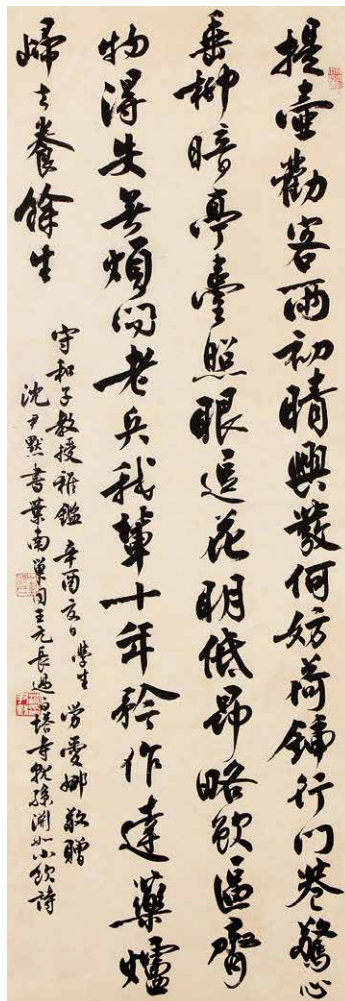 提壺勸客雨初晴興發何妨荷鍤行門巷驚心
垂柳暗亭臺照眼逗花明低昂略欲區齊
物得失無煩問老兵我輩十年矜作達藥爐
歸去養餘生
守和子教授雅鑑 辛酉夏日 學生 勞愛娜敬贈
沈尹默書葉南單同王元長過塔寺就孫淵如小飲詩